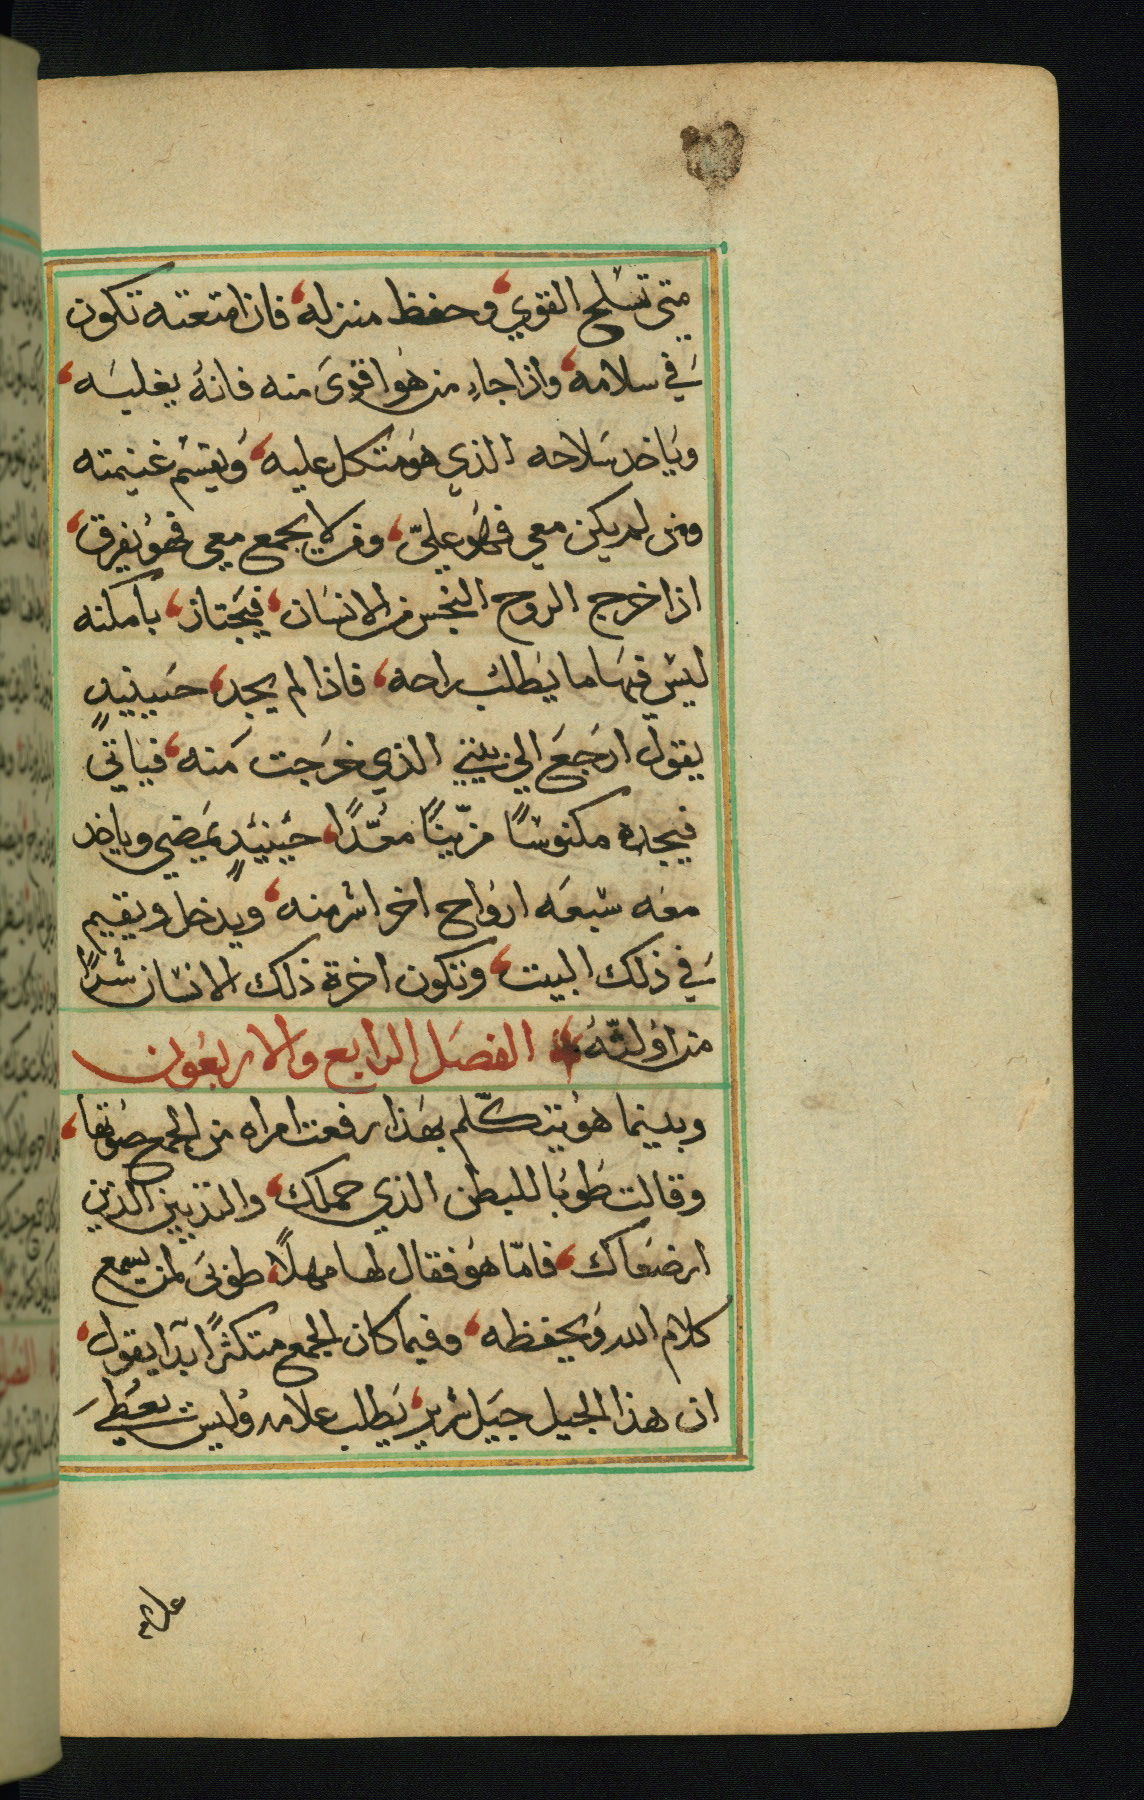 متى تسلح القوي، وحفظ منزله، فان امتعته تكون
في سلامه، واذا جاء من هو اقوى منه فانه يغلبه،
وياخد سلاحه الذي هو متكل عليه، ويقسم غنيمته
ومن لم يكن معي فهو عليّ، ومن لا يجمع معي فهو يفرق،
اذا خرج الروح النجس من الانسان، فيجتاز، بامكنه
ليس فيها ما يطلب راحه، فاذا لم يجد، حينيدٍ
يقول ارجع الي بيتي الذي خرجت منه، فياتي
فيجده مكنوسًا مزينًا معدًا، حينيدٍ يمضي وياخد
معه سبعه ارواح اخر اشر منه، ويدخل ويقيم
في ذلك البيت، وتكون اخرة ذلك الانسان شرًا
من اولته، الفصل الرابع والاربعون
وبينما هو يتكلم بهذا رفعت امراه من الجمع صوتها،
وقالت طوبا للبطن الذي حملك، والثديين الذين
ارضعاك، فامّا هو فقال لها مهلًا، طوبى لمن يسمع
كلام الله ويحفظه، وفيما كان الجمع متكثرًا بدا يقول،
ان هذا الجيل جيل شرير، يطلب علامه وليس يعطى
علامه